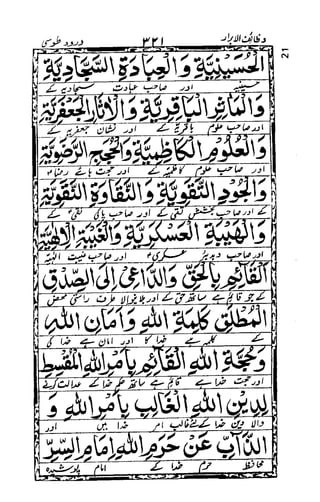 وظائف الابرار ۳۲۱ درود طوسی
21
الْحُسَيْنِيَّةِ وَالْعِبَادَةِ السَّجَّادِيَّةِ
حسینیہ اور صاحب عبادت سجادیہ کے
وَالْمَاٰثِرِ الْبَاقِرِيَّةِ وَالْاٰثَارِ الْجَعْفَرِيَّةِ
اور صاحب ماثر باقریہ کے اور نشان جعفریہ کے
وَالْعُلُومِ الْكَاظِمِيَّةِ وَالْحُجَجِ الرَّضَوِيَّةِ
اور صاحب علوم کاظمیہ کے اور حجت ہائے رضویہ
وَالْجُودِ التَّقَوِيَّةِ وَالنَّقَاوَةِ النَّقَوِيَّةِ
کے اور صاحب بخشش تقی کے اور صاحب پاکی نقی کے
وَالْهَيْبَةِ الْعَسْكَرِيَّةِ وَالْغَيْبَةِ الْاِلٰهِيَّةِ
اور صاحب ہیبت عسکری اور صاحب غیبت الہیہ
الْقَائِمِ بِالْحَقِّ وَالدَّاعِي اِلَى الصِّدْقِ
کے جو قائم ہے ساتھ حق کے اور بلانیوالا طرف راستی محض
الْمُطْلَقِ كَلِمَةِ اللهِ وَاَمَانِ اللهِ
کے کلمہ ہے خدا کا اور امان ہے خدا کی
وَحُجَّةِ اللهِ الْقَائِمِ بِاَمْرِ اللهِ الْمُقْسِطِ
اور حجت خدا ہے قائم ہے ساتھ حکم خدا کے عدالت کرنے
لِدِينِ اللهِ الْغَالِبِ بِاَمْرِ اللهِ وَ
والا دین خدا کے لئے غالب امر خدا میں اور
الذَّابِّ عَنْ حَرَمِ اللهِ اِمَامِ السِّرِّ
محافظ حرم خدا کے امام پوشیدہ